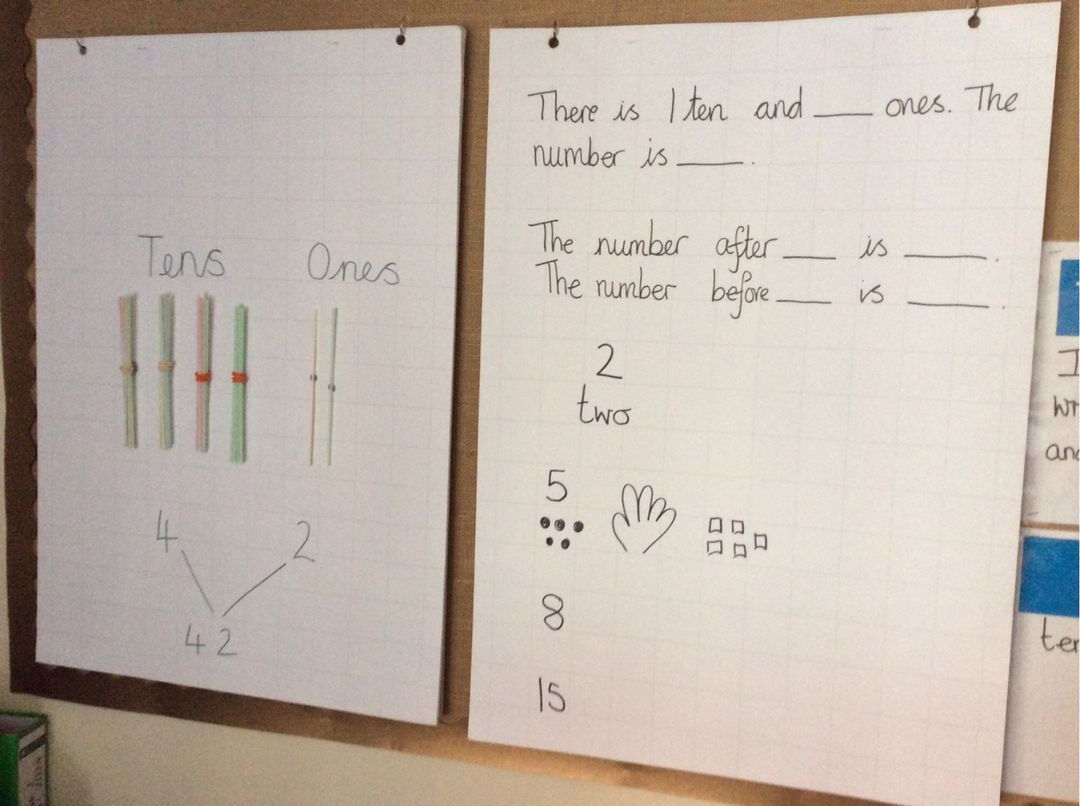 Tens Ones
4 2
42
There is 1 ten and ___ ones. The
number is ___.
The number after ___ is ___.
The number before ___ is ___.
2
two
5
8
15
I
wr
and
ter